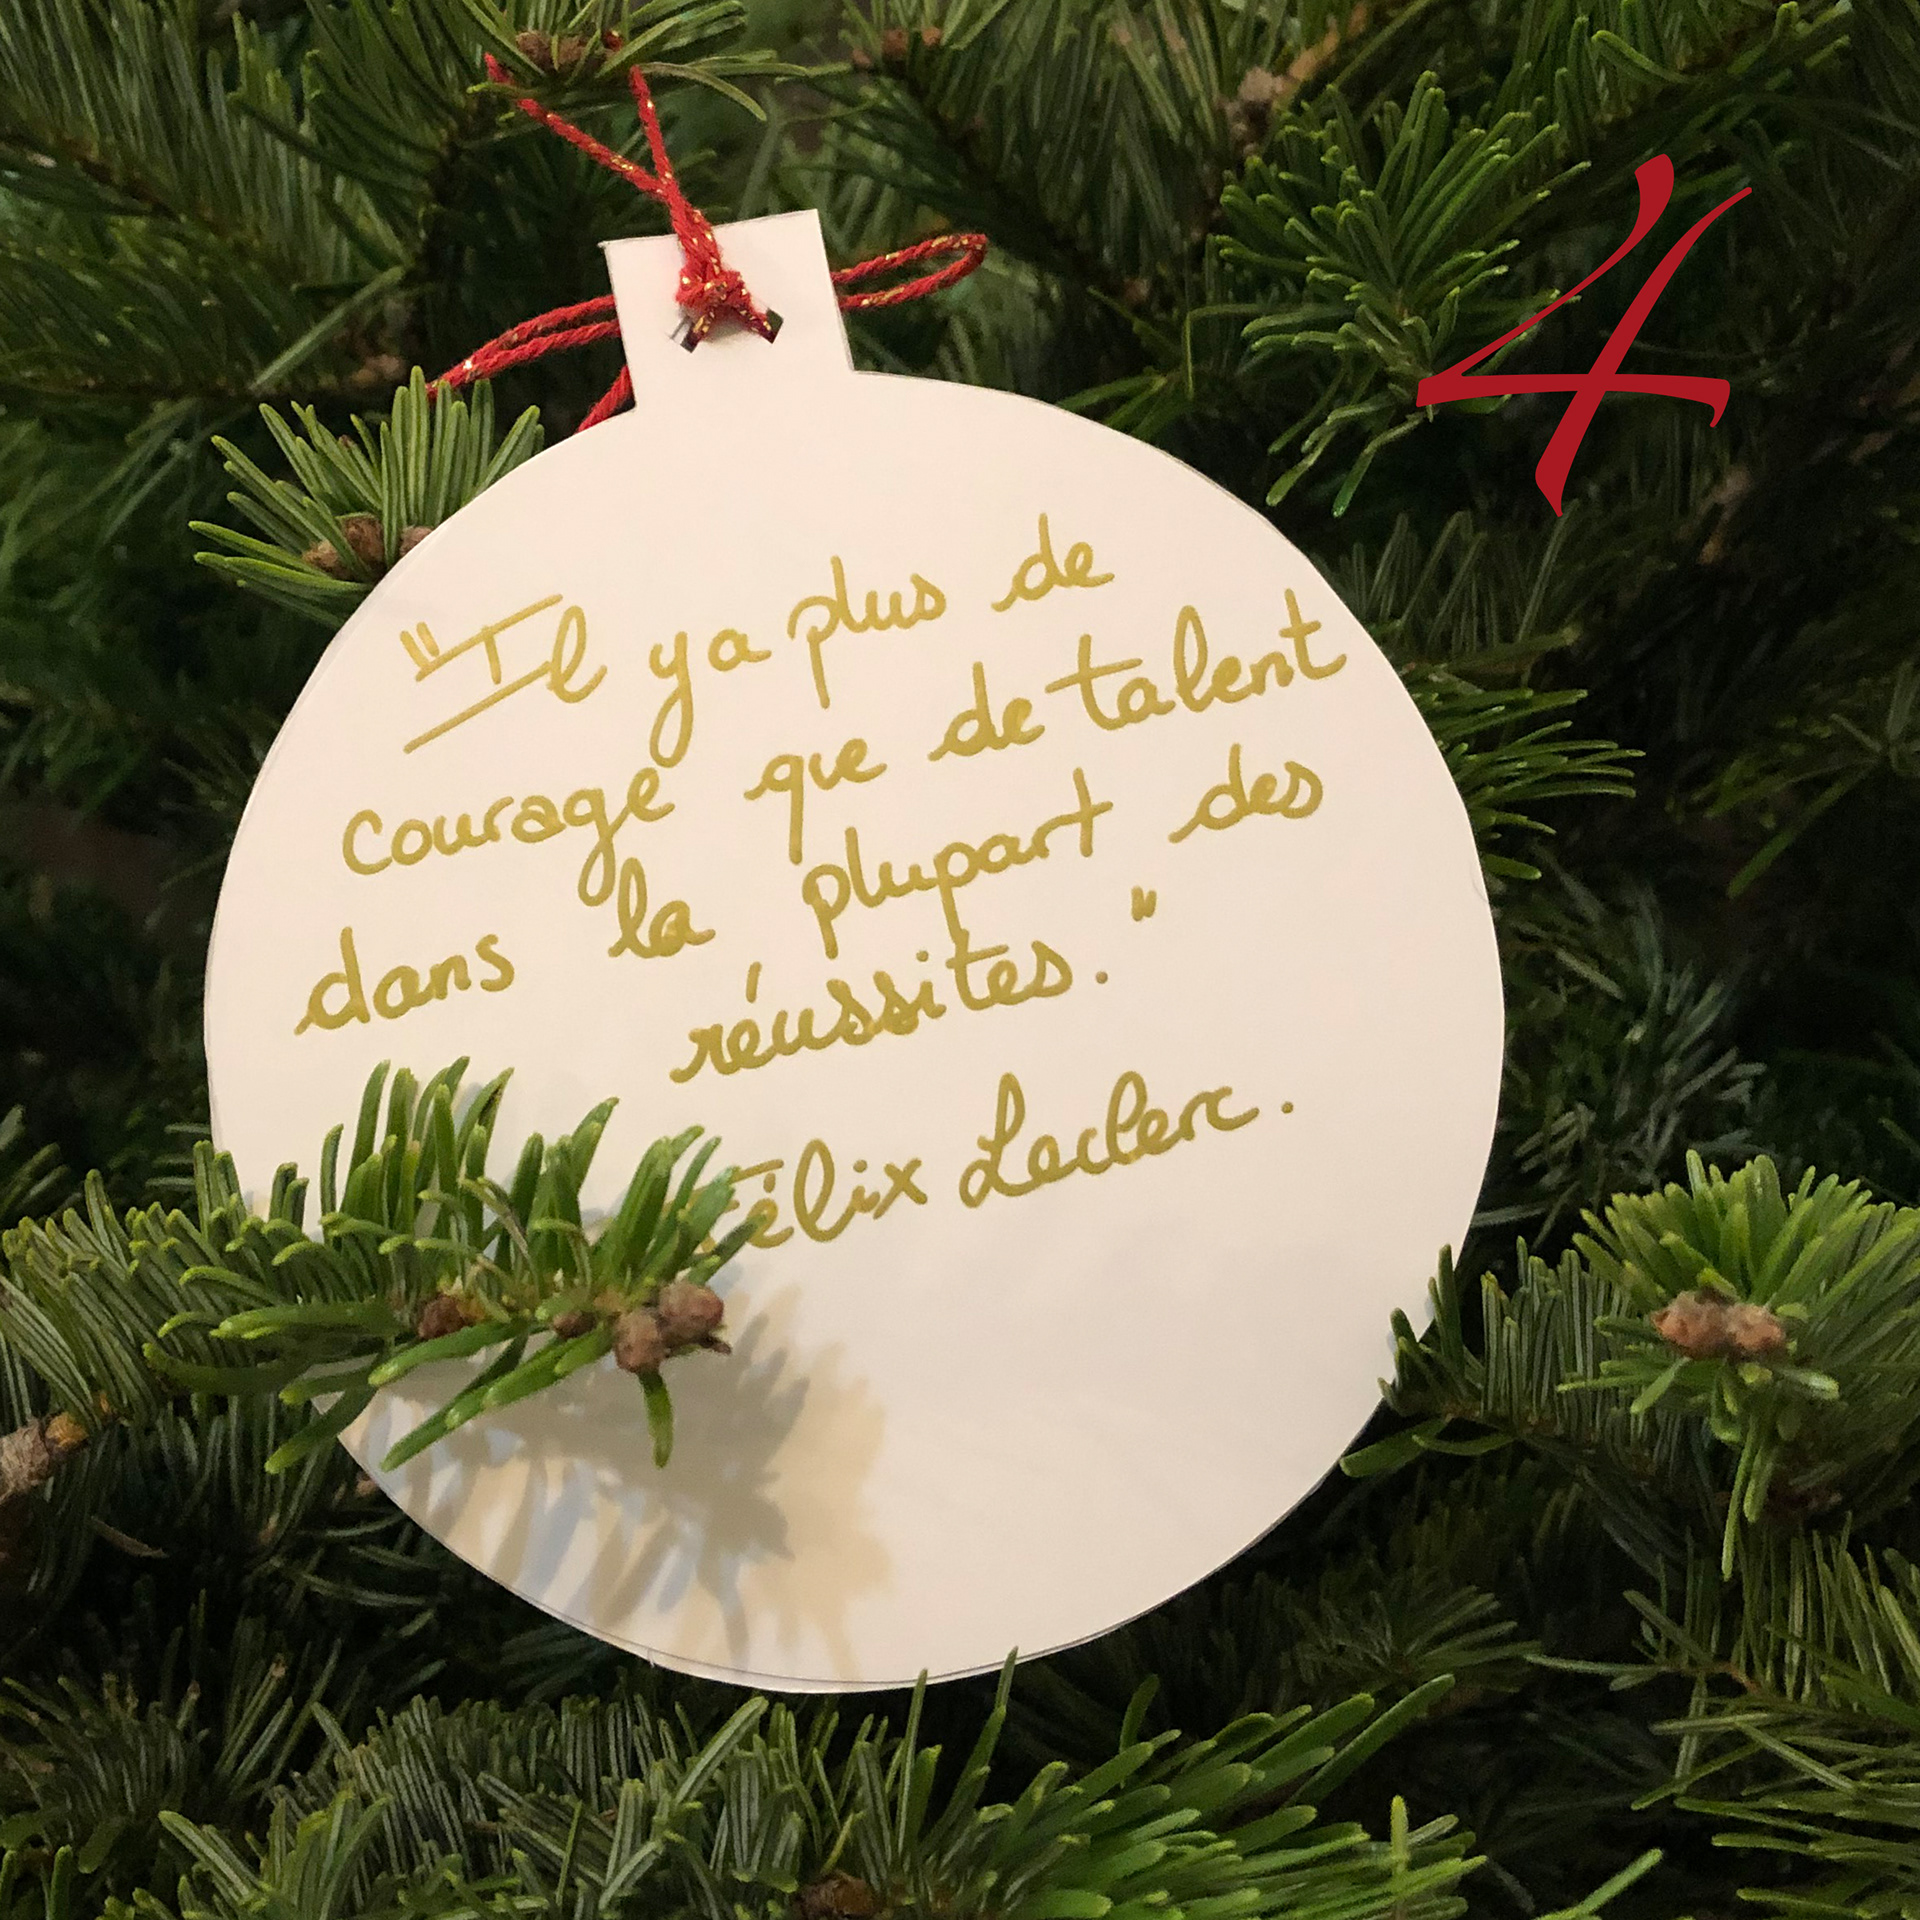 4
"Il y a plus de
courage que de talent
dans la plupart des
réussites."
Félix Leclerc.